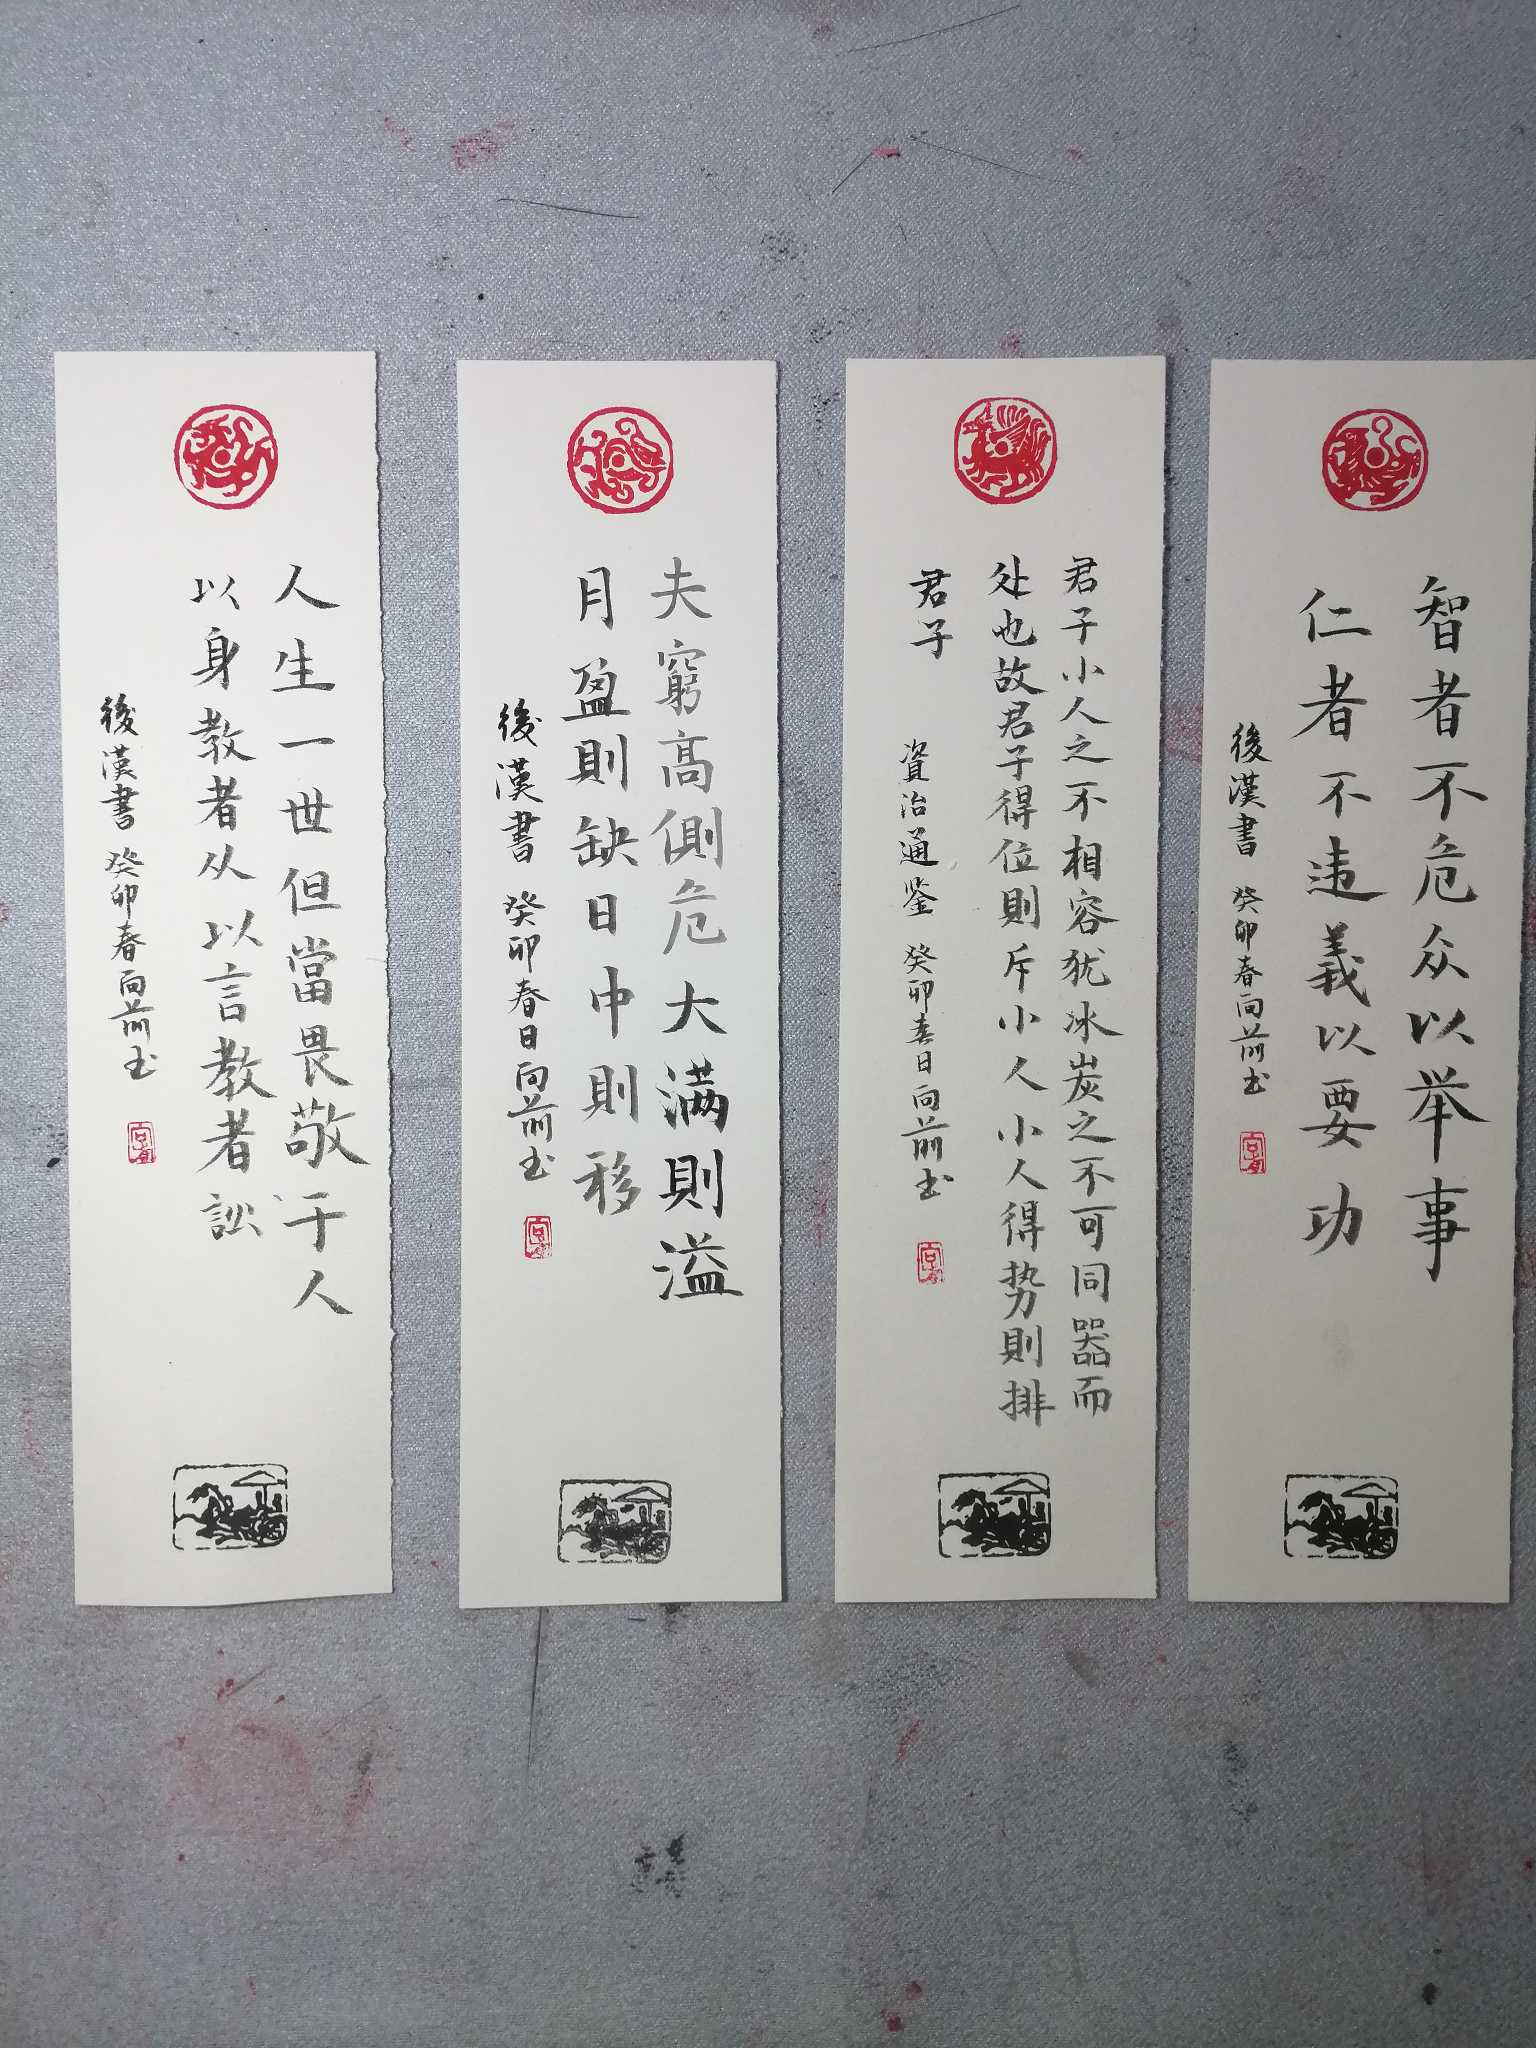 智者不危众以举事
仁者不违義以要功
後漢書 癸卯春向前书
君子小人之不相容犹冰炭之不可同器而
处也故君子得位則斥小人小人得势則排
君子
資治通鉴 癸卯春日向前书
夫窮高側危大满則溢
月盈則缺日中則移
後漢書 癸卯春日向前书
人生一世但當畏敬于人
以身教者从以言教者訟
後漢書 癸卯春向前书